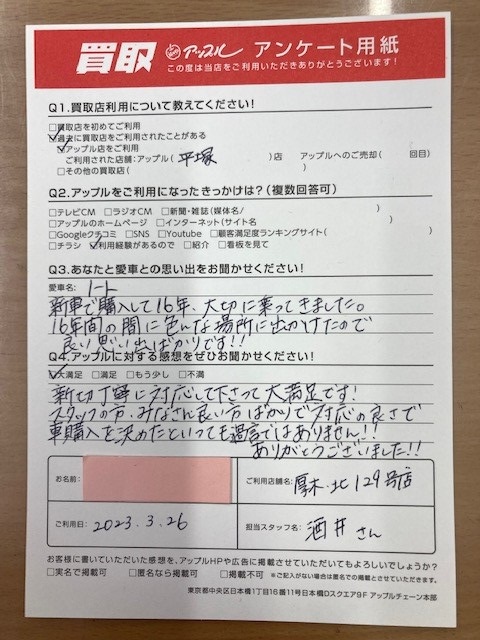 買取 アップル アンケート用紙
この度は当店をご利用いただきありがとうございます!
Q1.買取店利用について教えてください!
□買取店を初めてご利用
☑過去に買取店をご利用されたことがある
☑アップル店をご利用
ご利用された店舗:アップル( 平塚 )店 アップルへのご売却( 回目)
□その他の買取店( )
Q2.アップルをご利用になったきっかけは?(複数回答可)
□テレビCM □ラジオCM □新聞・雑誌(媒体名/ )
□アップルのホームページ □インターネット(サイト名 )
□Googleクチコミ □SNS □Youtube □顧客満足度ランキングサイト( )
□チラシ ☑利用経験があるので □紹介 □看板を見て
Q3.あなたと愛車との思い出をお聞かせください!
愛車名: ノート
新車で購入して16年、大切に乗ってきました。
16年間の間に色んな場所に出かけたので
良い思い出ばかりです!!
Q4.アップルに対する感想をぜひお聞かせください!
☑大満足 □満足 □もう少し □不満
親切丁寧に対応して下さって大満足です!
スタッフの方、みなさん良い方ばかりで対応の良さで
車購入を決めたといっても過言ではありません!!
ありがとうございました!!
お名前:
ご利用店舗名: 厚木・北129号店
ご利用日: 2023.3.26
担当スタッフ名: 酒井さん
お客様に書いていただいた感想を、アップルHPや広告に掲載させていただいてもよろしいでしょうか?
□実名で掲載可 □匿名なら掲載可 □掲載不可 ※ご記入がない場合は匿名での掲載とさせていただきます。
東京都中央区日本橋1丁目16番11号日本橋Dスクエア9F アップルチェーン本部